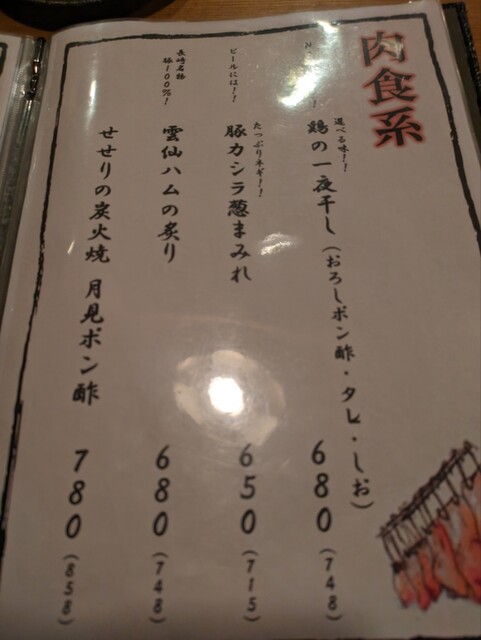 肉食系
選べる味！！
鶏の一夜干し（おろしポン酢・タレ・しお）
680（748）
ビールには！！
たっぷりネギ！！
豚カシラ葱まみれ
650（715）
長崎名物
豚100％！
雲仙ハムの炙り
680（748）
せせりの炭火焼 月見ポン酢
780（858）